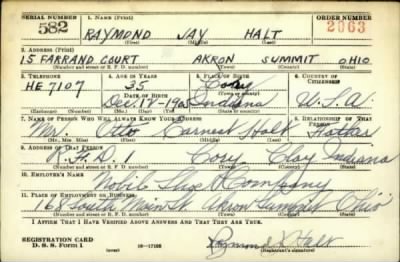 SERIAL NUMBER 1. NAME (Print) ORDER NUMBER
582 RAYMOND JAY HALT 2063
(First) (Middle) (Last)
2. ADDRESS (Print)
15 FARRAND COURT AKRON SUMMIT OHIO
(Number and street or R. F. D. number) (Town) (County) (State)
3. TELEPHONE 4. AGE IN YEARS 5. PLACE OF BIRTH 6. COUNTRY OF CITIZENSHIP
HE 7107 35 Cory
DATE OF BIRTH (Town or county)
Dec. 12 - 1905 Indiana U.S.A.
(Exchange) (Number) (Mo.) (Day) (Yr.) (State or country)
7. NAME OF PERSON WHO WILL ALWAYS KNOW YOUR ADDRESS 8. RELATIONSHIP OF THAT PERSON
Mr. Otto Earnest Halt Father
(Mr., Mrs., Miss) (First) (Middle) (Last)
9. ADDRESS OF THAT PERSON
R.F.D. 1 Cory Clay Indiana
(Number and street or R. F. D. number) (Town) (County) (State)
10. EMPLOYER'S NAME
Shoe Company
11. PLACE OF EMPLOYMENT OR BUSINESS
168 South Main St. Akron Summit Ohio
(Number and street or R. F. D. number) (Town) (County) (State)
I AFFIRM THAT I HAVE VERIFIED ABOVE ANSWERS AND THAT THEY ARE TRUE.
REGISTRATION CARD
D. S. S. Form 1 16-17105 Raymond J. Halt
(Registrant's signature)